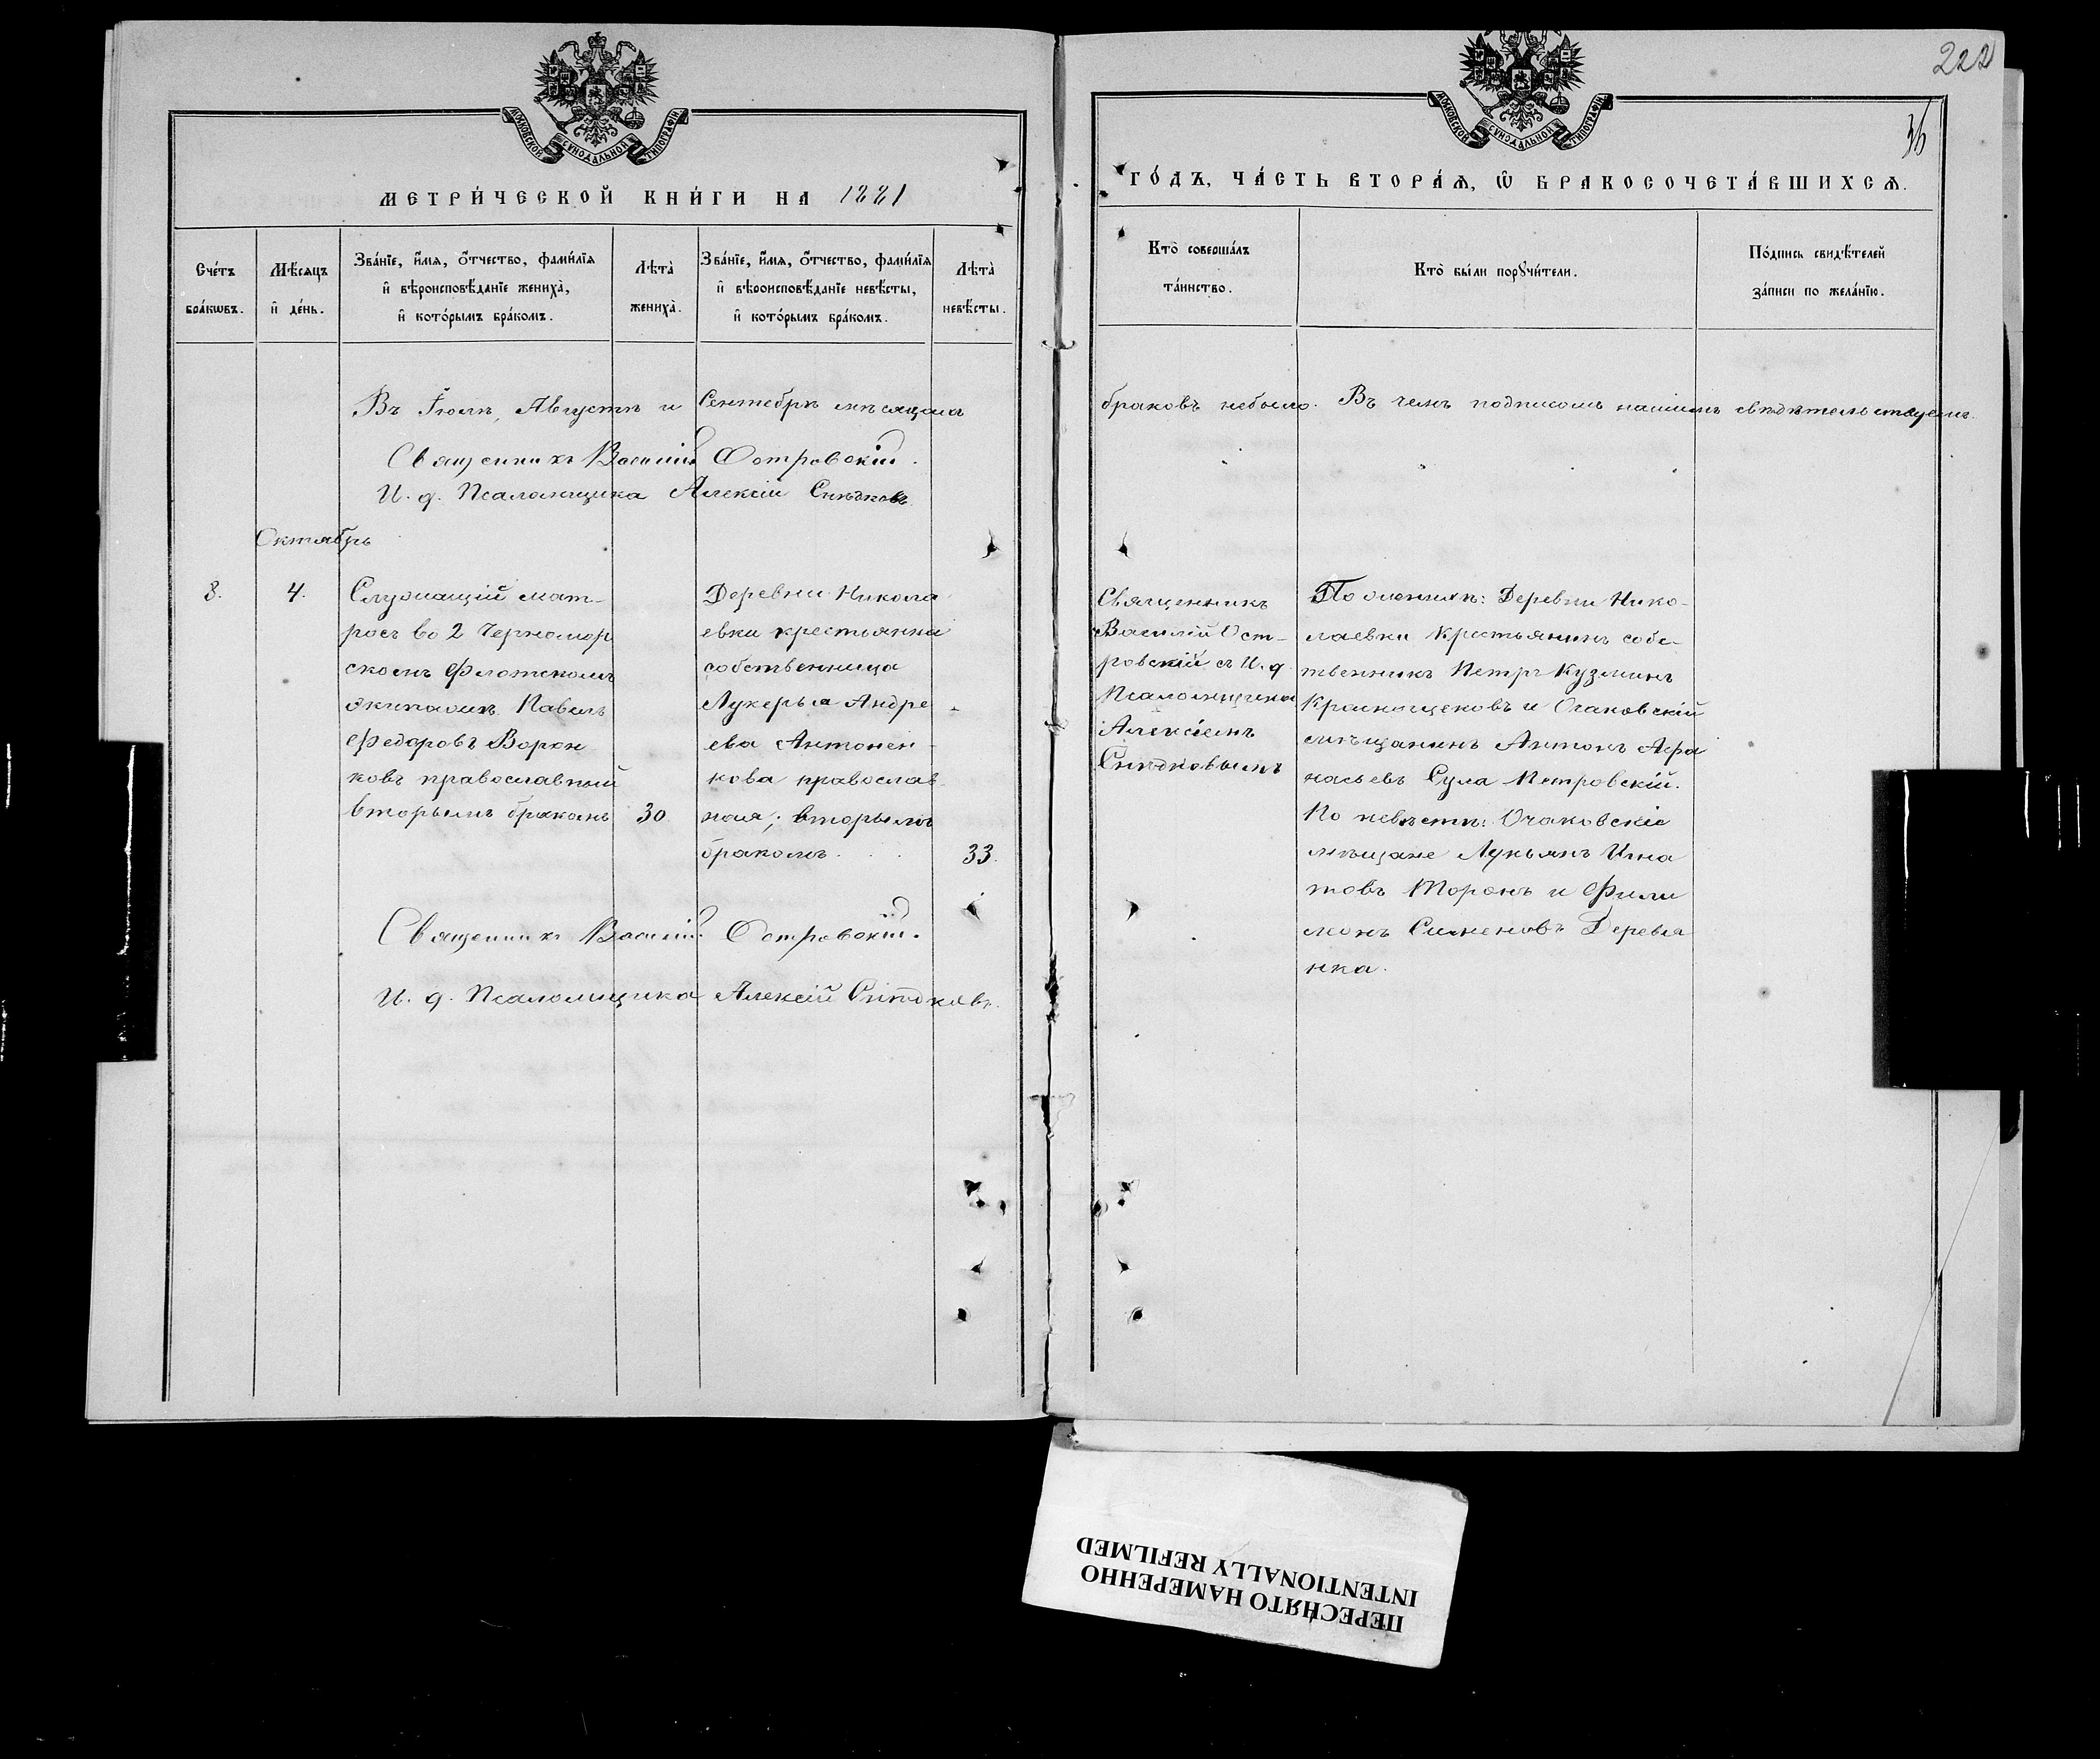 222
36
МОСКОВСКОЙ СѴНОДАЛЬНОЙ ТИПОГРАФІИ.
МОСКОВСКОЙ СѴНОДАЛЬНОЙ ТИПОГРАФІИ.
МЕТРИ́ЧЕСКОЙ КНИ́ГИ НА 1881
ГО́ДЪ, ЧА́СТЬ ВТОРА́Ѧ, Ѿ БРАКОСОЧЕТА́ВШИХСѦ.
Сче́тъ
бра́кѡвъ.
Мѣ́сяцъ
и҆ де́нь.
Зва́нїе, и҆́мя, о҆́тчество, фами́лїя
и҆ вѣроисповѣ́данїе жениха̀,
и҆ кото́рымъ бра́комъ.
Лѣта̀
жениха̀.
Зва́нїе, и҆́мя, о҆́тчество, фами́лїя
и҆ вѣроисповѣ́данїе невѣ́сты,
и҆ кото́рымъ бра́комъ.
Лѣта̀
невѣ́сты.
Кто̀ соверша́лъ
та́инство.
Кто̀ бы́ли порꙋчи́тели.
По́дпись свидѣ́телей
за́писи по жела́нїю.
Въ Іюлѣ, Августѣ и Сентебрѣ мѣсяцахъ браковъ небыло. Въ чемъ подписомъ нашимъ свѣдѣтельствуемъ.
Священникъ Василій Островскій.
И. д. Псаломщика Алексій
Октябрь
8. 4.
Служащій мат-
росъ во 2 Черномор
скомъ Флотскомъ
экипажѣ Павелъ
Федоровъ Ворон
ковъ православный
вторымъ бракомъ 30
Деревни Никола
евки крестьянка
собственница
Лукерья Андре
ева Антонен-
кова православ-
ная; вторымъ
бракомъ . . . 33.
Священникъ
Василій Ост-
ровскій съ И. д.
Псаломщика
Алексіемъ
По женихѣ: Деревни Нико-
лаевки Крестьянинъ собс-
твенникъ Петръ Кузминъ
Краснощековъ и Очаковскій
мѣщанинъ Антонъ Афа
насьевъ Сула Петровскій.
По невѣстѣ: Очаковскіе
мѣщане Лукьянъ Игна
товъ Моронъ и Фили
монъ Сименовъ Деревя
нка.
Священникъ Василій Островскій.
И. д. Псаломщика Алексій
ПЕРЕСНЯТО НАМЕРЕННО
INTENTIONALLY REFILMED